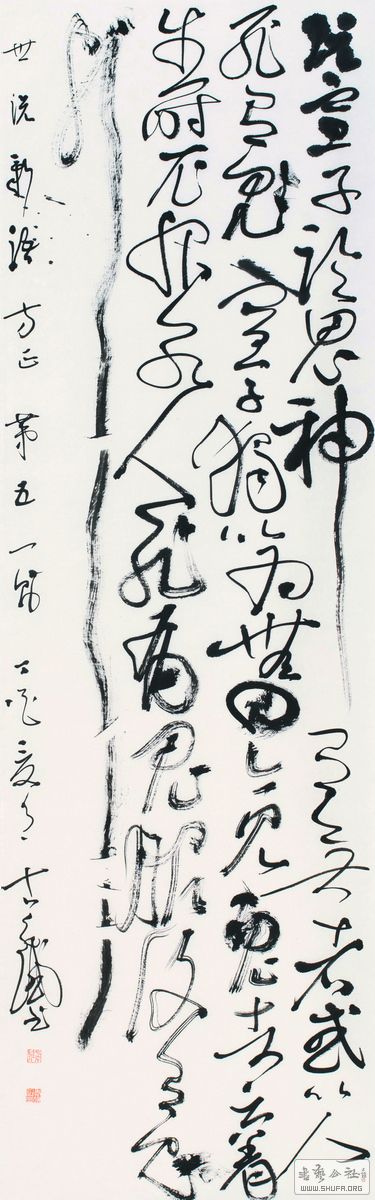 阮宣子論鬼神有无者或以人
死有鬼宣子獨以為無曰今見鬼者云著
生時衣服若人死有鬼服復有鬼
邪
世說新語 方正 第五 一則 丁酉夏月
WWW.SHUFA.ORG